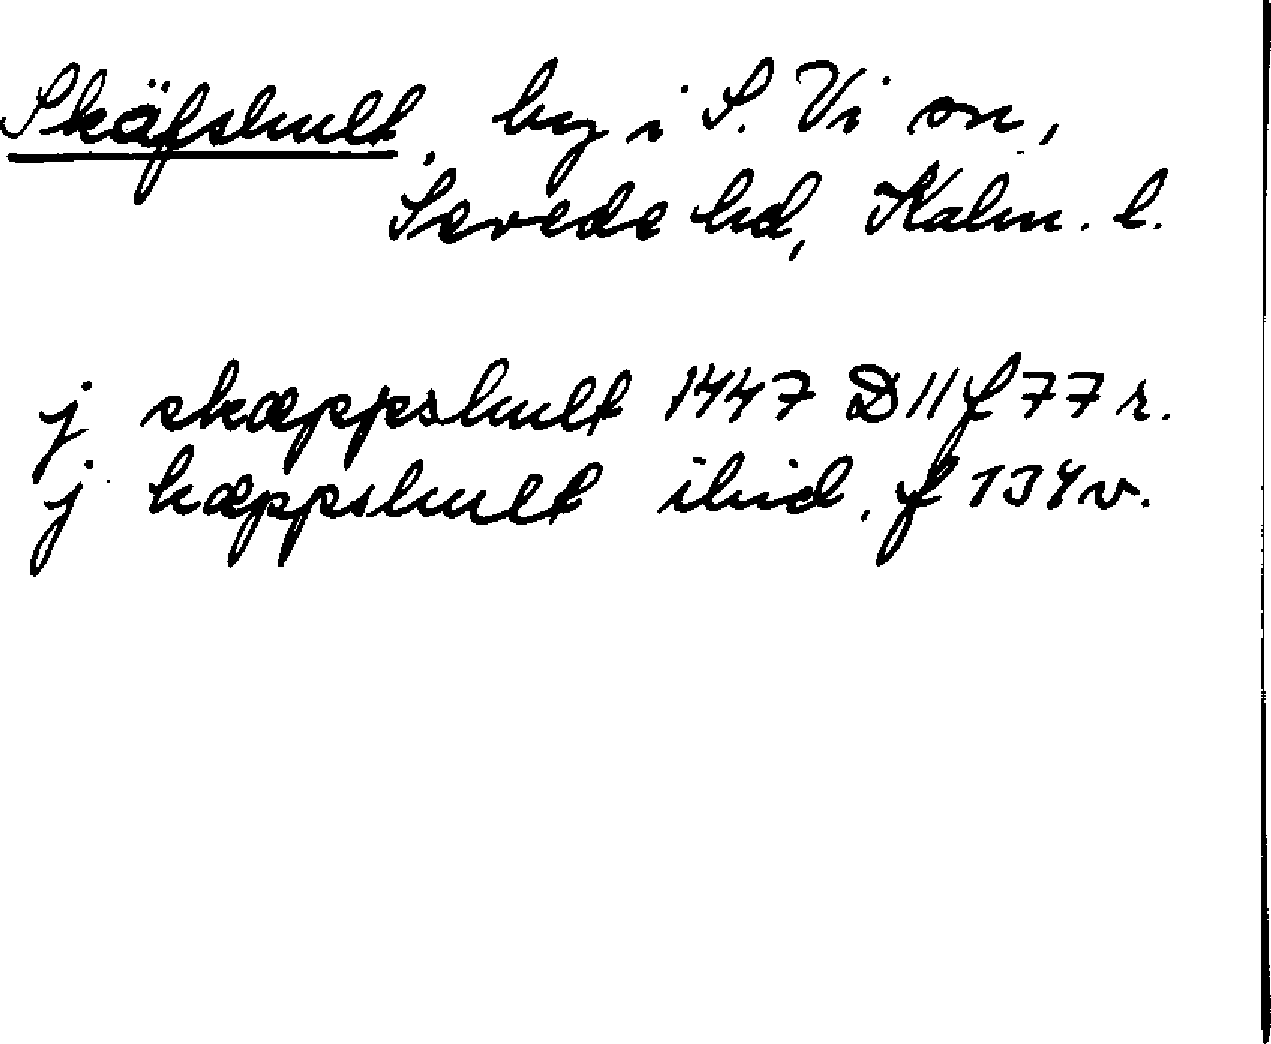 Skäfshult, by i S. Vi sn,
Sevede hd, Kalm. l.
j skæppshult 1447 D 11 f 77 r.
j hæppshult ibid. f 134 v.